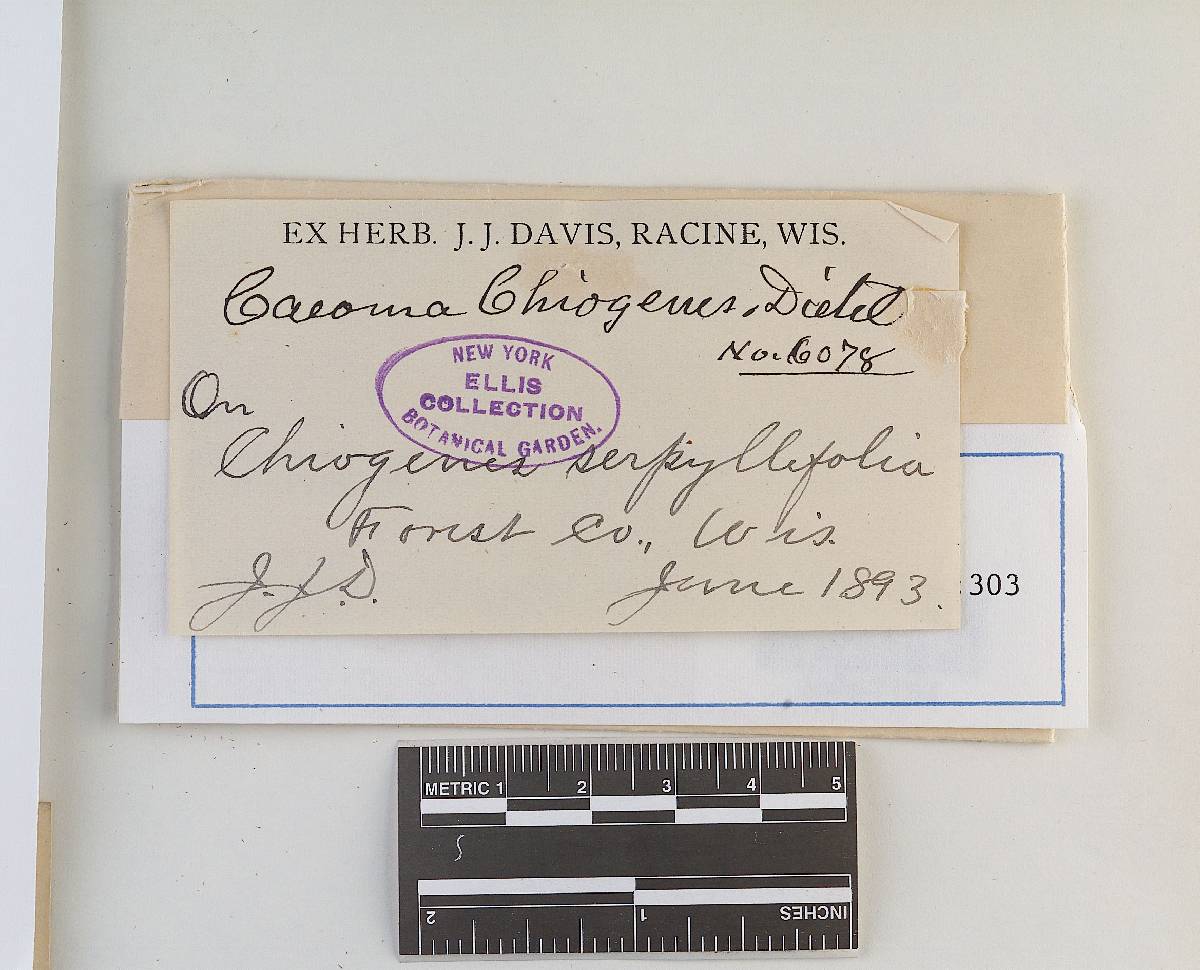 EX HERB. J. J. DAVIS, RACINE, WIS.
Caeoma Chiogenes. Dietel
No. 6078
NEW YORK
ELLIS
COLLECTION
BOTANICAL GARDEN.
On
Chiogenes serpyllifolia
Forest Co., Wis.
J. J. D. June 1893.
303
METRIC 1 2 3 4 5
INCHES 1 2